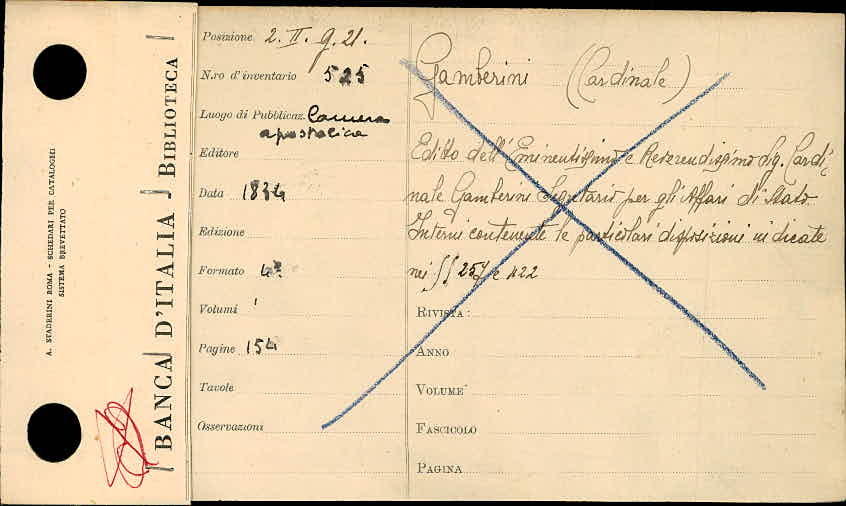 A. STADERINI ROMA - SCHEDARI PER CATALOGHI
SISTEMA BREVETTATO
BANCA D'ITALIA - BIBLIOTECA
Posizione 2. II. g. 21.
N.ro d'inventario 525
Luogo di Pubblicaz. Camera
apostolica
Editore
Data 1834
Edizione
Formato 4°
Volumi 1
Pagine 154
Tavole
Osservazioni
Gamberini (Cardinale)
Editto dell'Eminentissimo e Reverendissimo Sig. Cardi-
nale Gamberini Segretario per gli Affari di Stato
Interni contenente le particolari disposizioni indicate
nei §§ 257 e 422
RIVISTA:
ANNO
VOLUME
FASCICOLO
PAGINA